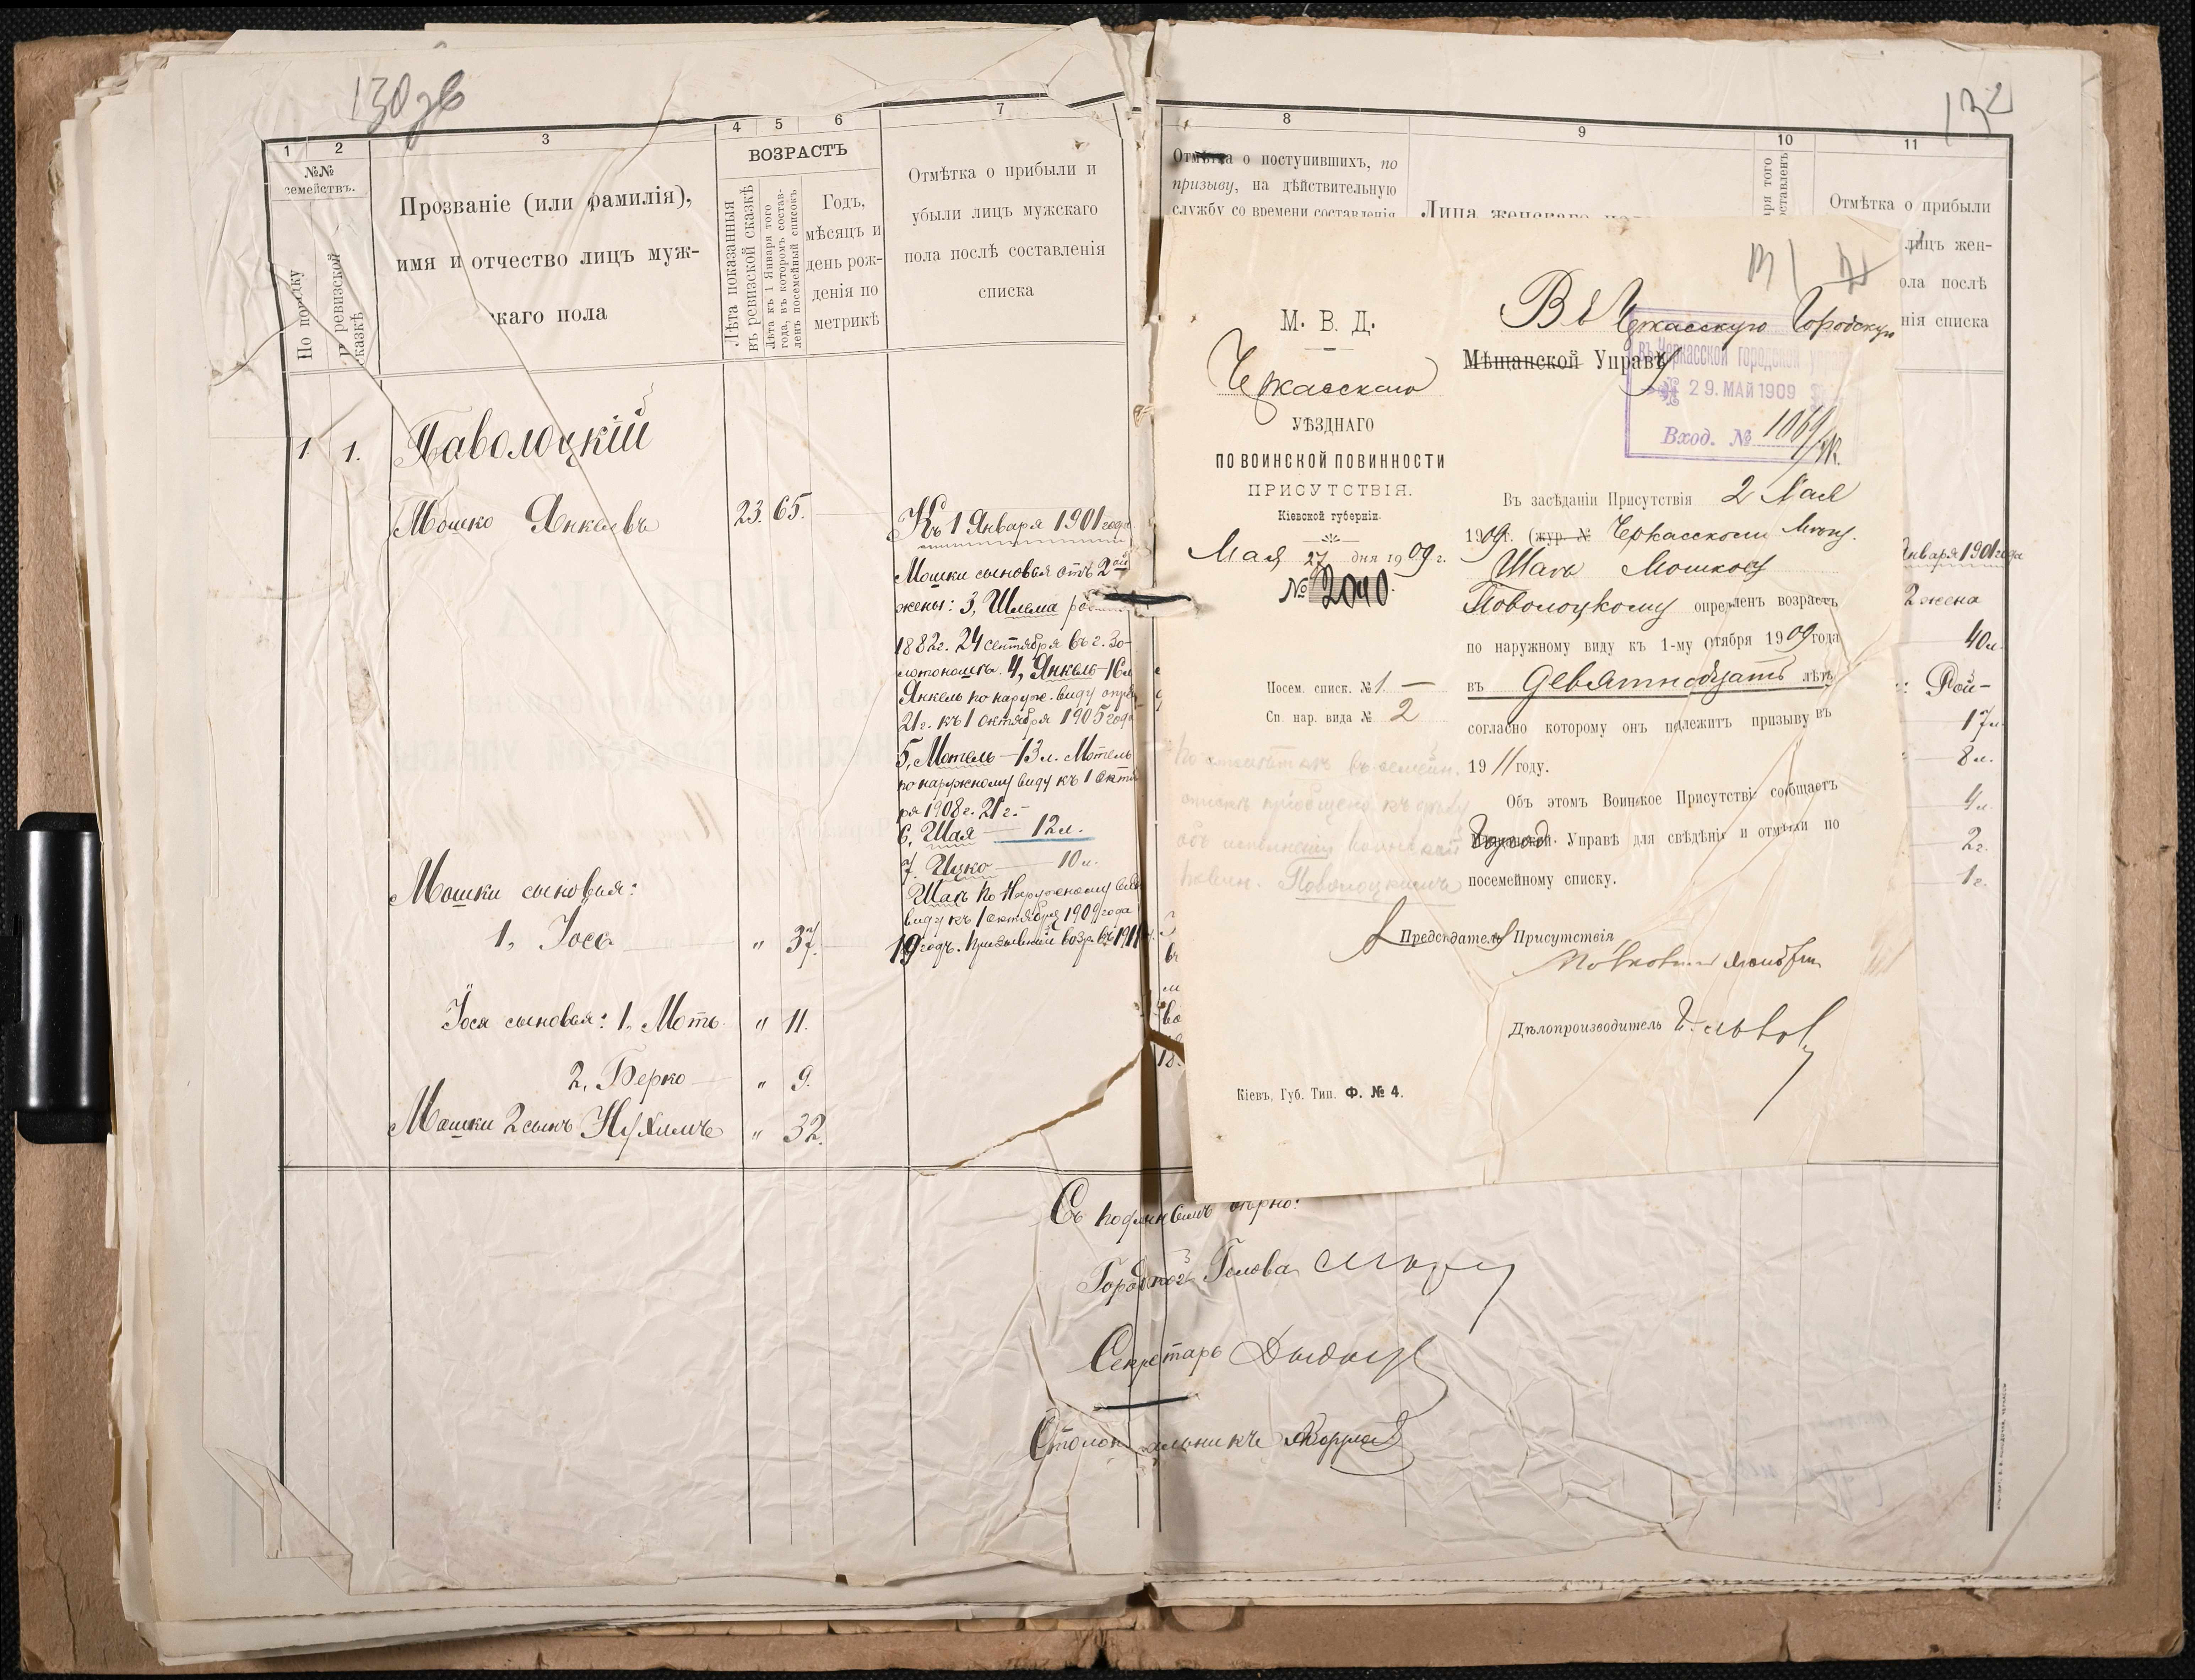 130 об
132
1
2
3
4
5
6
7
№№
семействъ.
По порядку
ревизской сказкѣ
Прозваніе (или фамилія),
имя и отчество лицъ муж-
скаго пола
ВОЗРАСТЪ
Лѣта показанныя
въ ревизской сказкѣ
Лѣта къ 1 Января того
года, въ которомъ состав-
ленъ посемейный списокъ
Годъ,
мѣсяцъ и
день рож-
денія по
метрикѣ
Отмѣтка о прибыли и
убыли лицъ мужскаго
пола послѣ составленія
списка
1. 1. Паволоцкій
Мошко Янкелевъ 23. 65.
Къ 1 Января 1901 года
Мошки сыновья отъ 2ой
жены: 3, Шлема
1882г. 24 сентября въ г. Зо-
лотоношѣ. 4, Янкель-16л
Янкель по наруж. виду опред
21г. къ 1 октября 1905 года
5, Мотель - 13л. Мотель
по наружному виду къ 1 октя
ря 1908г. 21г.-
6, Шая 12л.
7. Ицко 10л.
Шая по Наружному
виду къ 1 октября 1909 года
19 годъ. призывной возр. въ 1911
Мошки сыновья:
1, Іось " 37.
Іося сыновья: 1, Моть " 11.
2, Берко " 9.
Мошки 2 сынъ Нухимъ " 32.
8
9
10
11
Отмѣтка о поступившихъ, по
призыву, на дѣйствительную
службу со времени составленія
Лица женскаго
ря того
оставленъ
Отмѣтка о прибыли
лицъ жен-
ола послѣ
нія списка
Января 1901 года
2 жена
40л
Рой-
17л
8л.
4л
2г.
1г.
М. В. Д.
Черкасскаго
УѢЗДНАГО
ПО ВОИНСКОЙ ПОВИННОСТИ
ПРИСУТСТВІЯ.
Кіевской губерніи.
Мая 27 дня 1909 г.
№ 2040.
Посем. списк. № 1 —
Сп нар. вида № 2
Въ Черкасскую Городскую
Мѣщанской Управу
Въ Черкасской городской управ
29. МАЙ 1909
Вход. № 1069
Въ засѣданіи Присутствія 2 Мая
1909 г. (жур. № Черкасскому мѣщ.
Шаѣ Мошкову
Поволоцкому опредѣленъ возрастъ
по наружному виду къ 1-му октября 1909 года
въ девятнадцать лѣтъ
согласно которому онъ подлежитъ призыву въ
1911 году.
Объ этомъ Воинское Присутствіе сообщаетъ
Мѣщанской Город. Управѣ для свѣдѣнія и отмѣтки по
посемейному списку.
Поволоцкимъ
Предсѣдатель Присутствія
Дѣлопроизводитель
Кіевъ, Губ. Тип. Ф. № 4.
Съ подлиннымъ вѣрно:
Городской Голова
Секретарь
Столоначальникъ